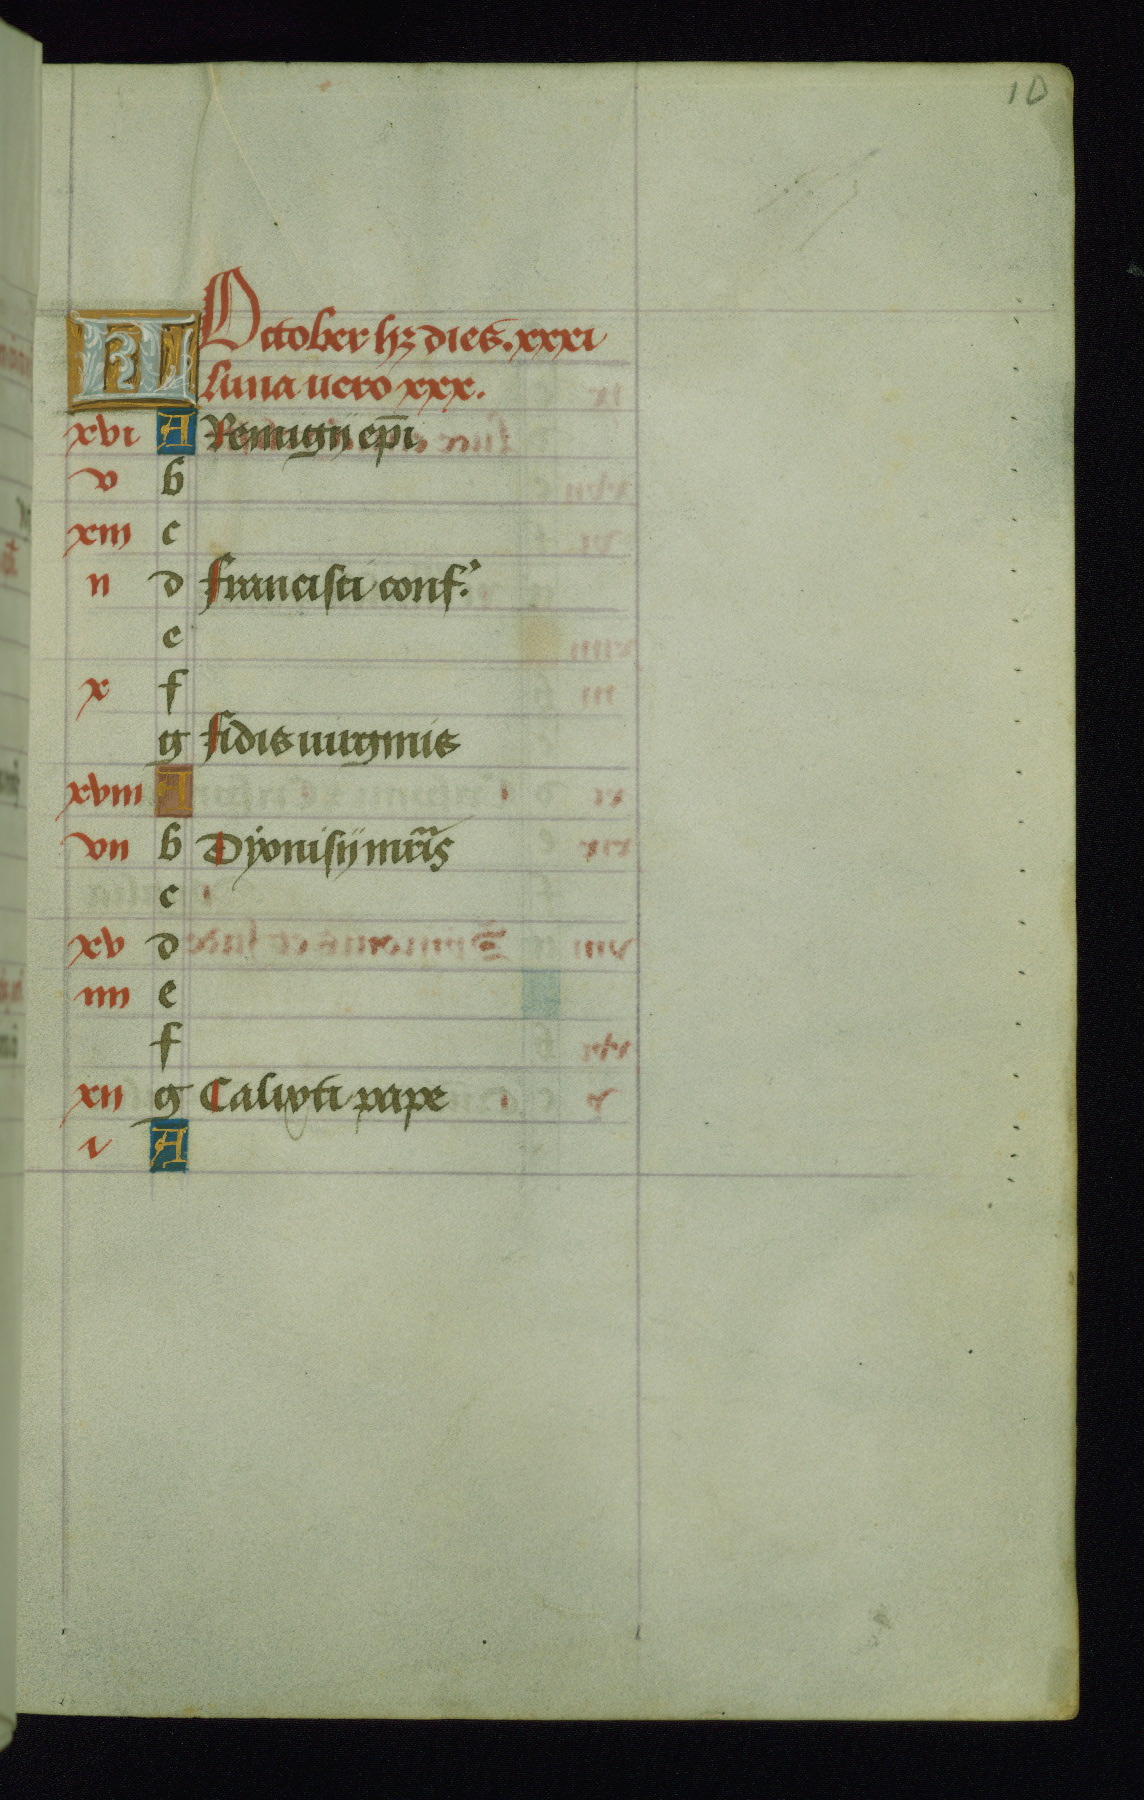 10
KL October hꝫ dies. xxxi
luna vero xxx.
xvi A Remigij ep̄i
v b
xiii c
ii d francisci conf.
e
x f
g fidis uirginis
xviii A
vii b Dyonisij mr̄is
c
xv d
iiii e
f
xii g Calixti pape
i A